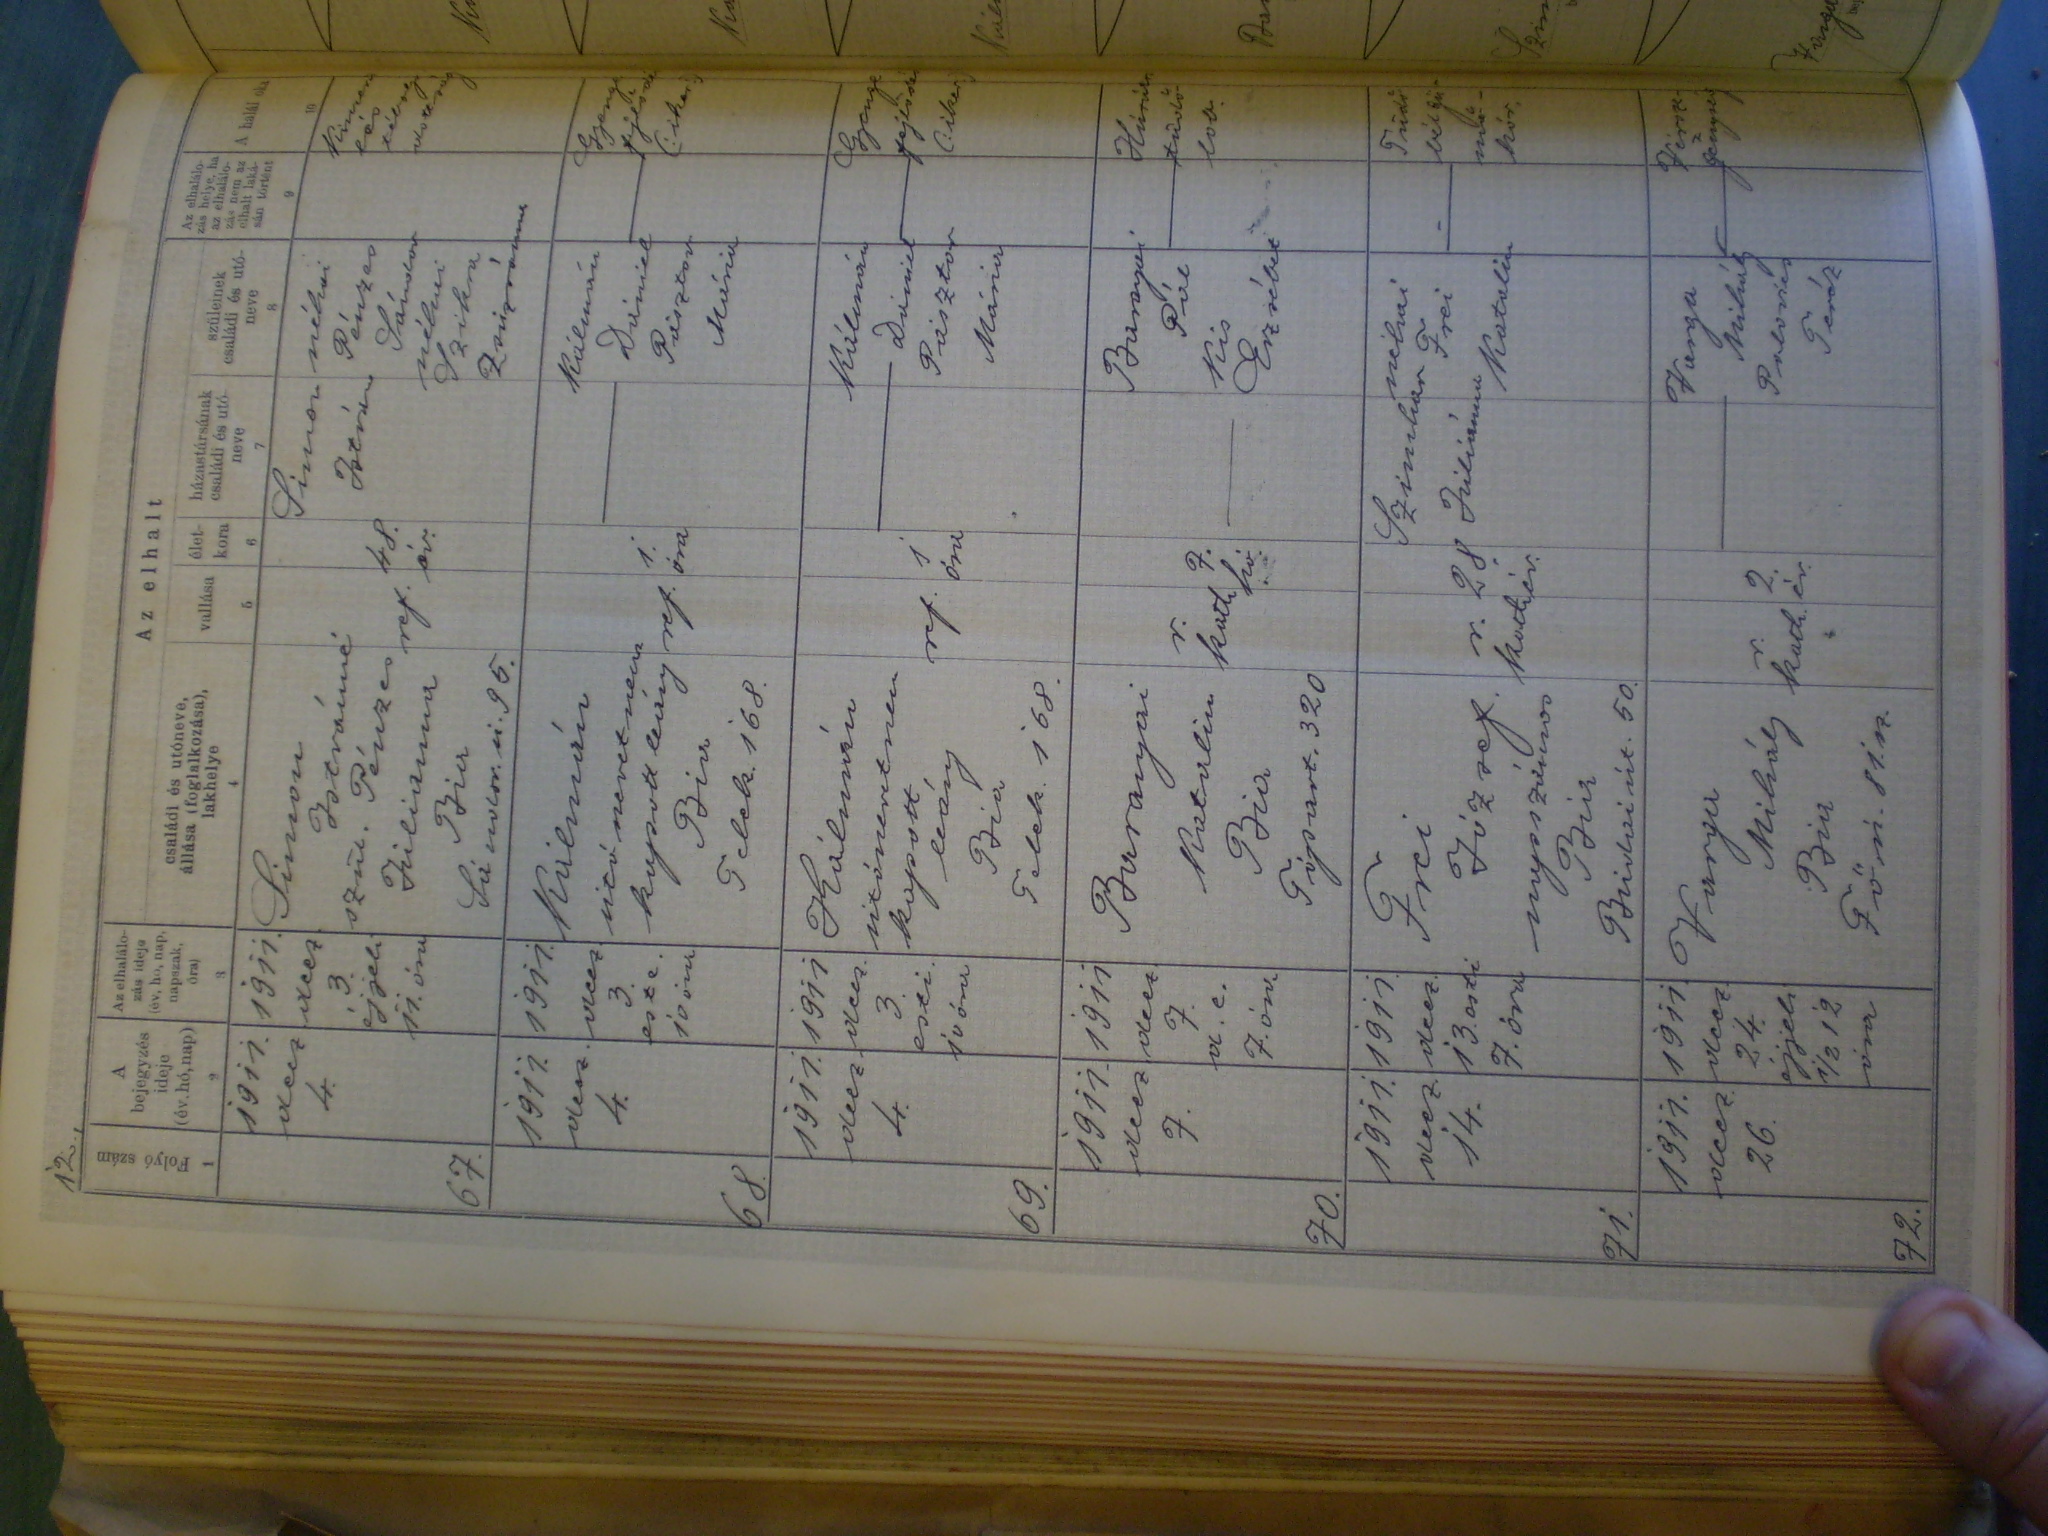 12.
Az elhalt
Folyó szám
A bejegyzés ideje (év, hó, nap)
Az elhalálozás ideje (év, hó, nap, napszak, óra)
családi és utóneve, állása (foglalkozása), lakhelye
vallása
életkora
házastársának családi és utóneve
szüleinek családi és utóneve
Az elhalálozás helye, ha az elhalálozás nem az elhalt lakásán történt
A halál oka
1 2 3 4 5 6 7 8 9 10
67.
1911. decz 4.
1911. decz. 3. éjjeli 11. óra
Simon
Istvánné
szül. Pénzes
Juliánna
Bia
Sándor. u. 95.
ref.
48. év.
Simon
István
néhai
Pénzes
Sándor
néhai
Szikra
Zsuzsánna
68.
1911. decz. 4.
1911. decz. 3. este. 10 óra
Kálmán
utónevet nem
kapott leány
Bia
Telek. 168.
ref.
1. óra
Kálmán
Dániel
Pásztor
Mária
Gyenge
fejlődés
69.
1911. decz. 4.
1911 decz. 3. esti. 10 óra
Kálmán
utónevet nem
kapott
leány
Bia
Telek. 168.
ref.
1 óra
Kálmán
Dániel
Pásztor
Mária
Gyenge
70.
1911. decz. 7.
1911 decz. 7. d. e. 7. óra
Baranyai
Katalin
Bia
Tópart. 320
r. kath.
7. hó.
Baranyai
Pál
Kis
Erzsébet
Hurut
tüdő
lob.
71.
1911. decz. 14.
1911. decz. 13. esti 7. óra
Frei
József.
napszámos
Bia
Budai út. 50.
r. kath.
28 év.
Szinhar
Juliánna
néhai
Frei
Katalin
Tüdő
kór.
72.
1911. decz. 26.
1911 decz. 24. éjjeli 1/2 12 óra
Varga
Mihály
Bia
Fő u. 81.sz.
r. kath.
2. év.
Varga
Mihály
Teréz